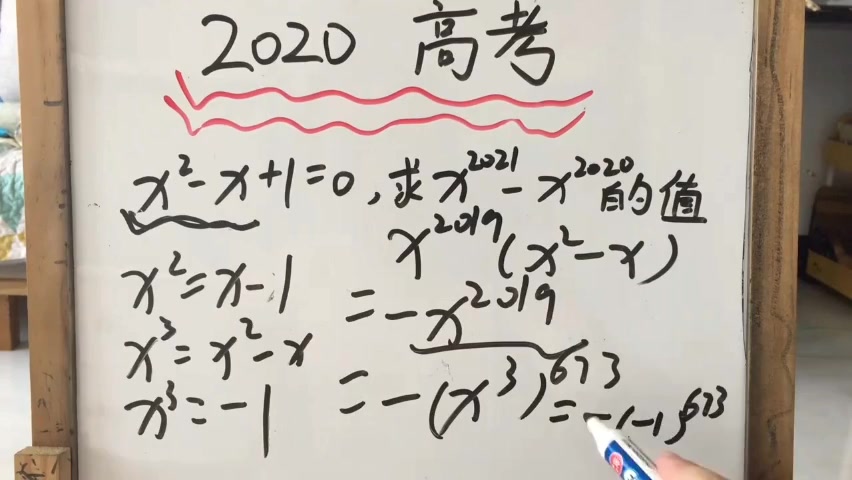 2020 高考
x²-x+1=0,求x²⁰²¹-x²⁰²⁰的值
x²⁰¹⁹(x²-x)
x²=x-1
=-x²⁰¹⁹
x³=x²-x
x³=-1
=-(x³)⁶⁷³=-(-1)⁶⁷³